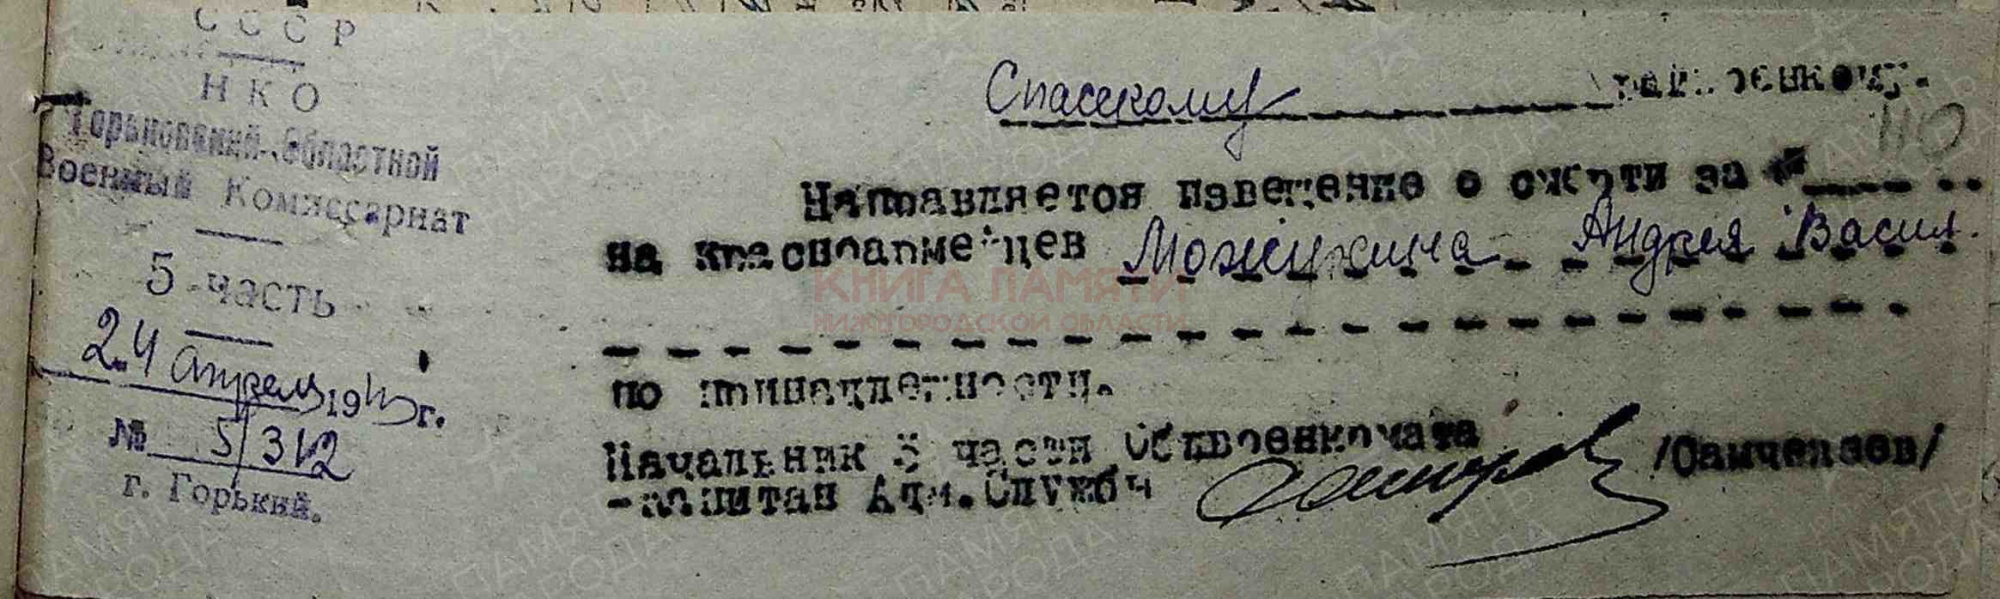 СССР
НКО
Горьковский Областной
Военный Комиссариат
5 часть
24 апреля 1943 г.
№ 5/312
г. Горький.
Спасскому райвоенкому.
110
Направляется извещение о смерти за №
на красноармейцев Можжухина Андрея Васил.
по принадлежности.
Начальник 5 части Облвоенкомата
-капитан Адм.Службы
КНИГА ПАМЯТИ
НИЖЕГОРОДСКОЙ ОБЛАСТИ